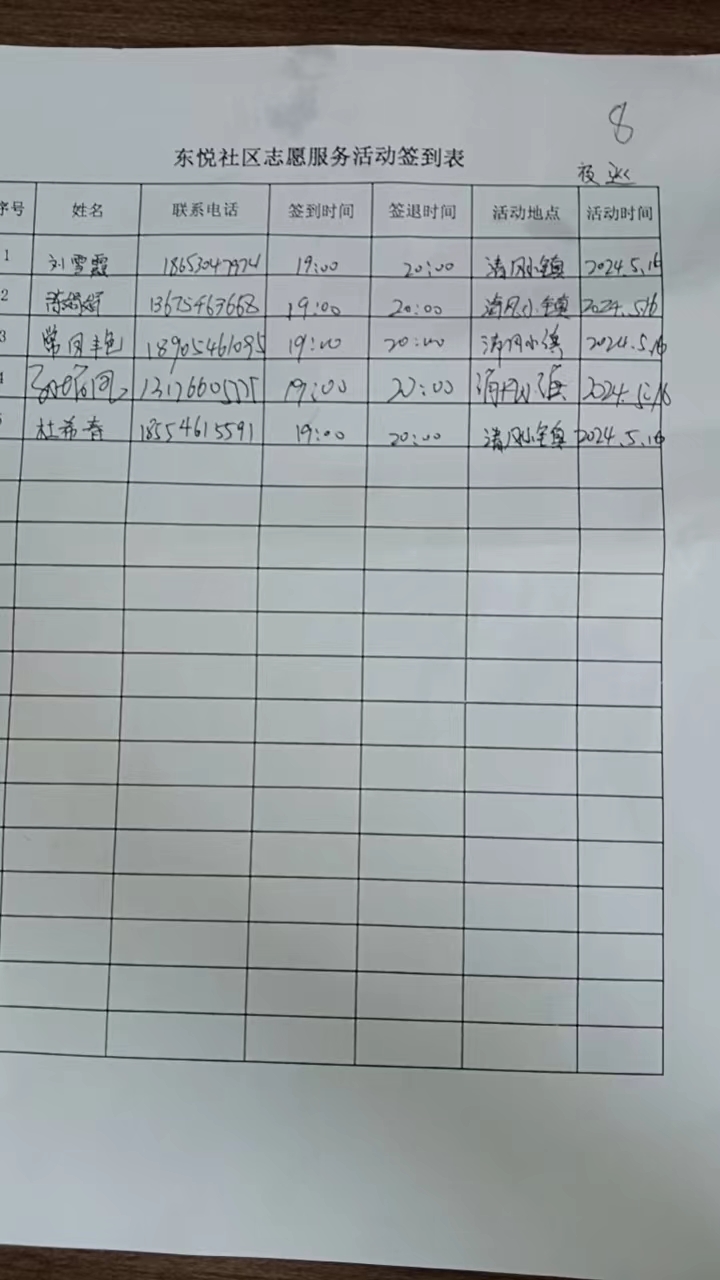 8
东悦社区志愿服务活动签到表
夜巡
序号 姓名 联系电话 签到时间 签退时间 活动地点 活动时间
1 刘雪霞 19:00 20:00 清风小镇 2024.5.16
2 13675467668 19:00 20:00 清风小镇 2024.5.16
3 18905461095 19:00 20:00 清风小镇 2024.5.16
4 19:00 20:00 清风小镇 2024.5.16
5 杜希春 18554615591 19:00 20:00 清风小镇 2024.5.16